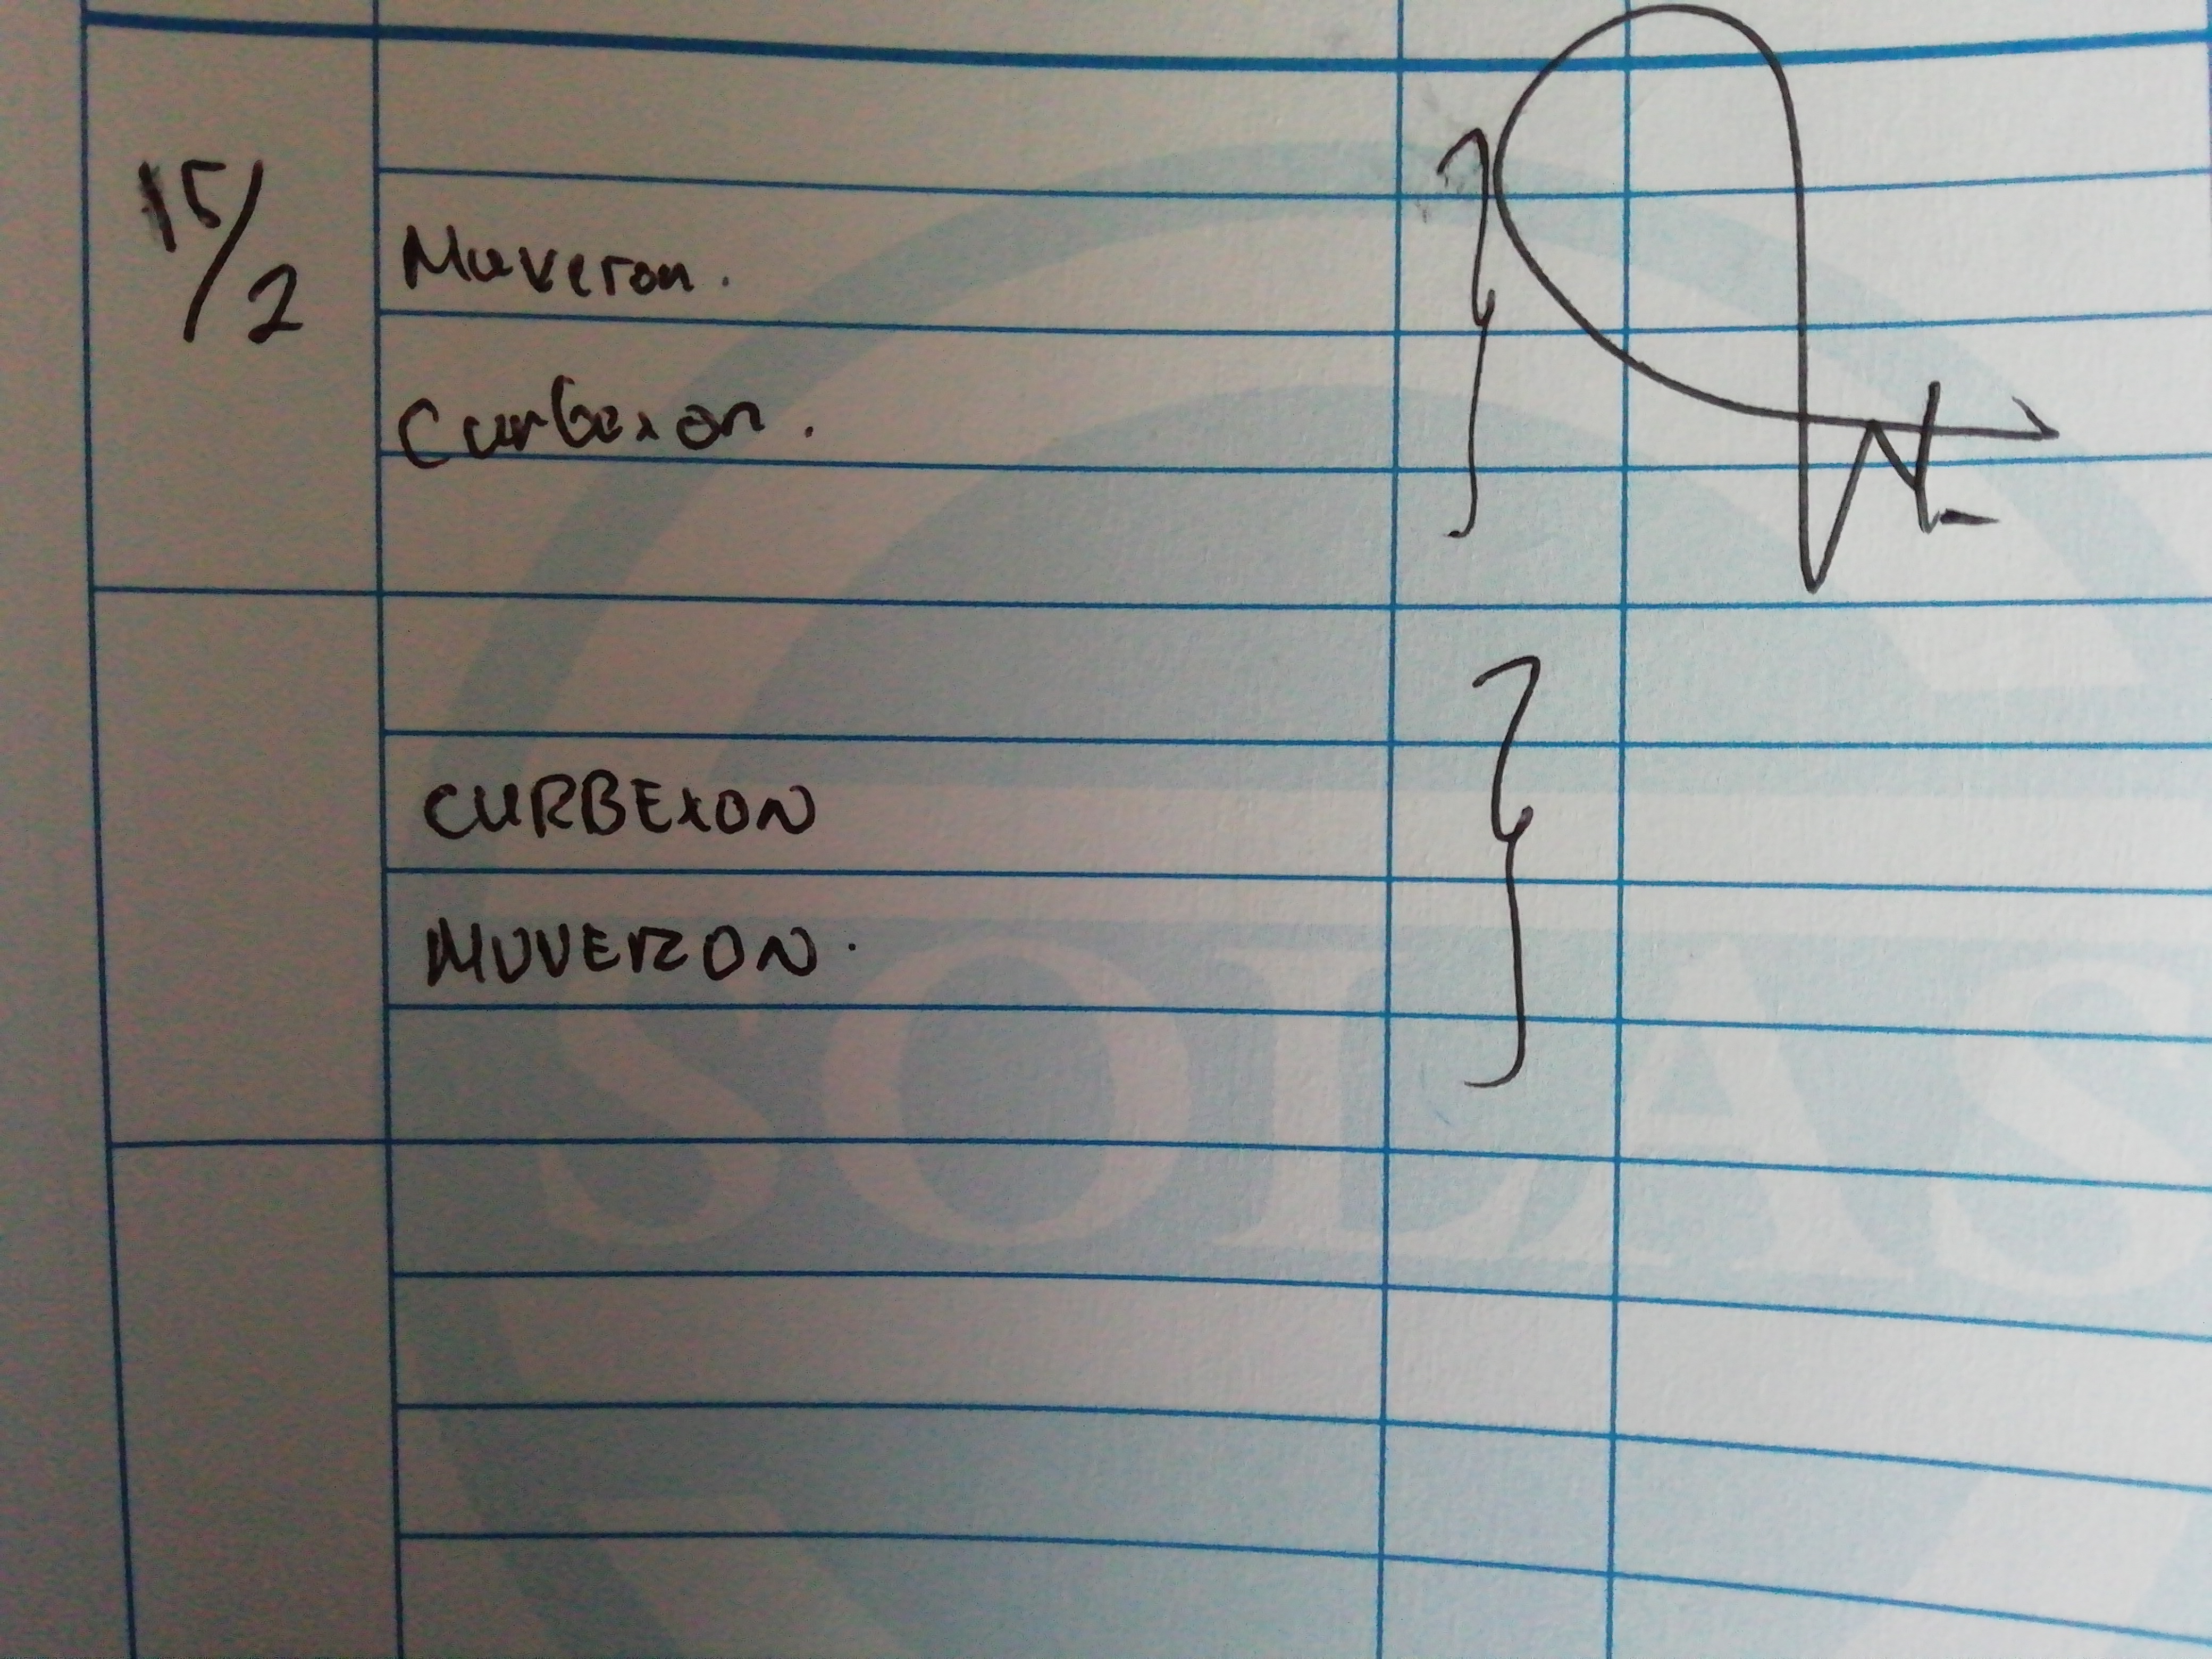 15/2
Muveron.
Curbexon.
CURBEXON
MUVERON.
SOLAS